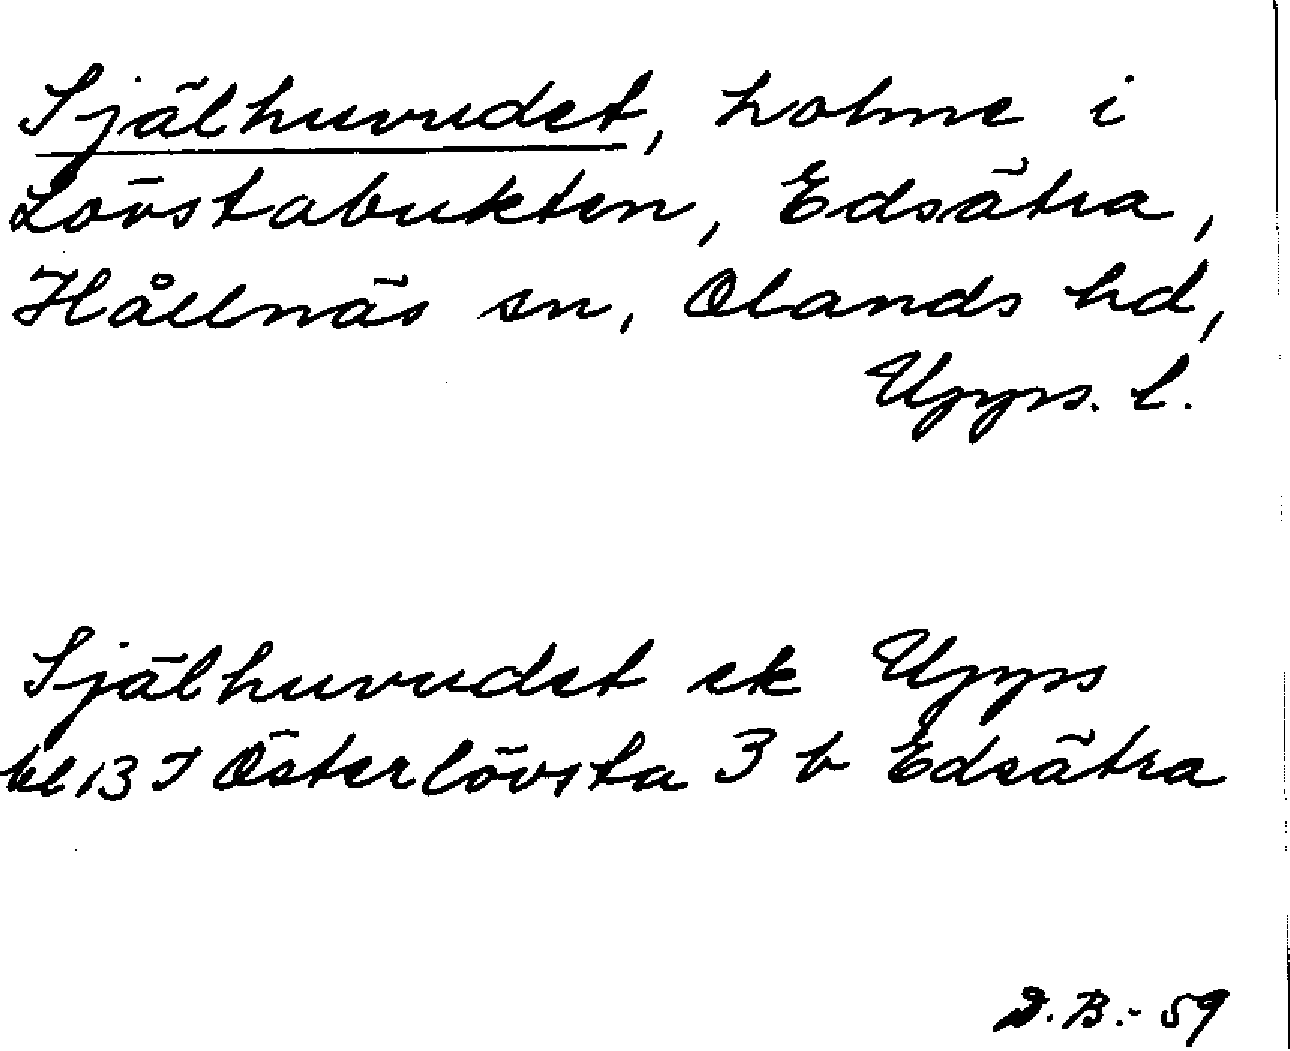 Själhuvudet, holme i
Lövstabukten, Edsätra,
Hållnäs sn, Olands hd,
Upps. l.
Själhuvudet ek Upps
bl 13 J Österlövsta 3 b Edsätra
D. B. - 59